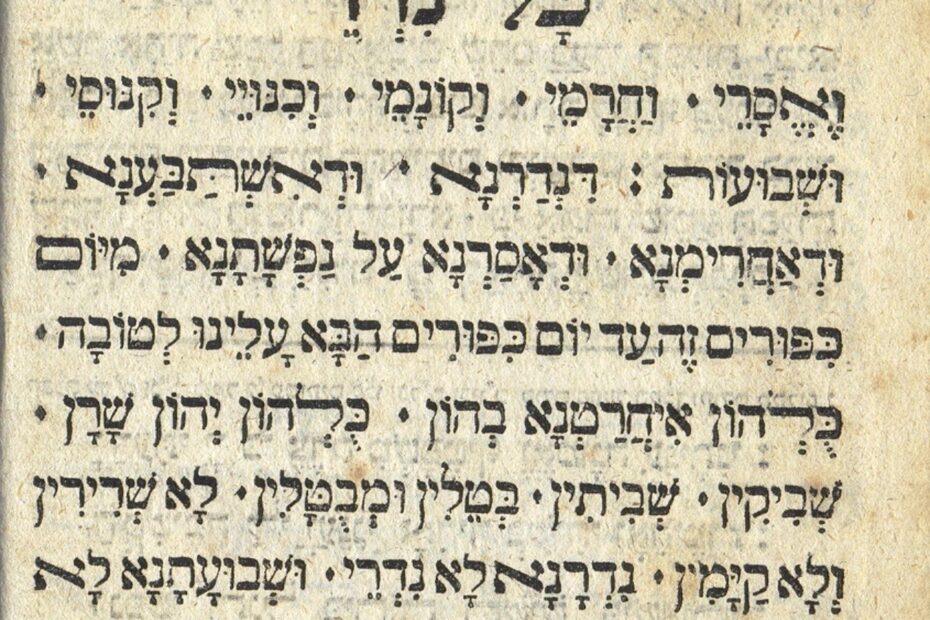 כָּל נִדְרֵי
וֶאֱסָרֵי · וַחֲרָמֵי · וְקוֹנָמֵי · וְכִנּוּיֵי · וְקִנּוּסֵי ·
וּשְׁבוּעוֹת : דִּנְדַרְנָא · וּדְאִשְׁתַּבַּעְנָא ·
וּדְאַחֲרִימְנָא · וּדְאָסַרְנָא עַל נַפְשָׁתָנָא · מִיּוֹם
כִּפּוּרִים זֶה עַד יוֹם כִּפּוּרִים הַבָּא עָלֵינוּ לְטוֹבָה ·
כֻּלְּהוֹן אִיחֲרַטְנָא בְהוֹן · כֻּלְּהוֹן יְהוֹן שָׁרָן ·
שְׁבִיקִין · שְׁבִיתִין · בְּטֵלִין וּמְבֻטָּלִין · לָא שְׁרִירִין
וְלָא קַיָּמִין · נִדְרָנָא לָא נִדְרֵי · וּשְׁבוּעָתָנָא לָא